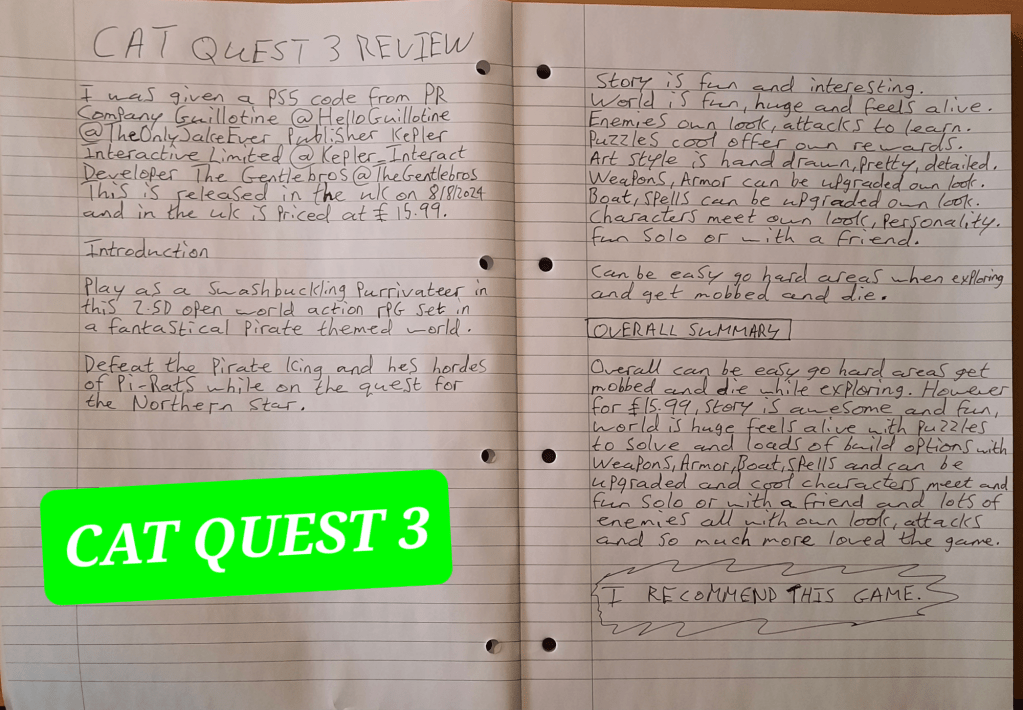 CAT QUEST 3 REVIEW
I was given a PS5 code from PR
Company Guillotine @HelloGuillotine
@TheOnlyJakeEver Publisher Kepler
Interactive Limited @Kepler_Interact
Developer The Gentlebros@TheGentlebros
This is released in the uk on 8/8/2024
and in the uk is priced at £15.99.
Introduction
Play as a Swashbuckling Purrivateer in
this 2.5D open world action rPG set in
a fantastical Pirate themed world.
Defeat the Pirate King and hes hordes
of Pi-Rats while on the quest for
the Northern Star.
CAT QUEST 3
Story is fun and interesting.
World is fun, huge and feels alive.
Enemies own look, attacks to learn.
Puzzles cool offer own rewards.
Art style is hand drawn, Pretty, detailed.
Weapons, Armor can be upgraded own look.
Boat, spells can be upgraded own look.
Characters meet own look, Personality.
fun solo or with a friend.
Can be easy go hard areas when exploring
and get mobbed and die.
OVERALL SUMMARY
Overall can be easy go hard areas get
mobbed and die while exploring. However
for £15.99, story is awesome and fun,
world is huge feels alive with puzzles
to solve and loads of build options with
Weapons, Armor, Boat, spells and can be
upgraded and cool characters meet and
fun solo or with a friend and lots of
enemies all with own look, attacks
and so much more loved the game.
I RECOMMEND THIS GAME.